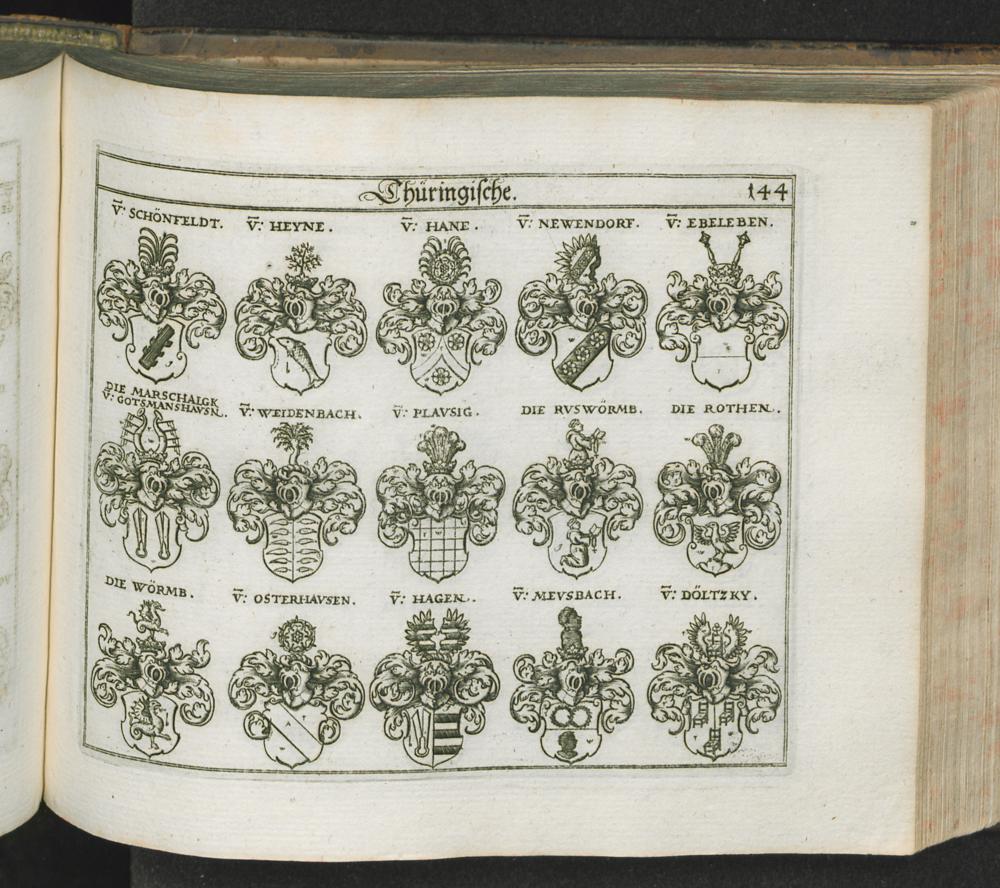 Thüringische.
144
V̄: SCHÖNFELDT.
V̄: HEYNE.
V̄: HANE.
V̄: NEWENDORF.
V̄: EBELEBEN.
DIE MARSCHALGK
V̄: GOTSMANSHAVSN.
V̄: WEIDENBACH.
V̄: PLAVSIG.
DIE RVSWÖRMB.
DIE ROTHEN.
DIE WÖRMB.
V̄: OSTERHAVSEN.
V̄: HAGEN.
V̄: MEVSBACH.
V̄: DÖLTZKY.